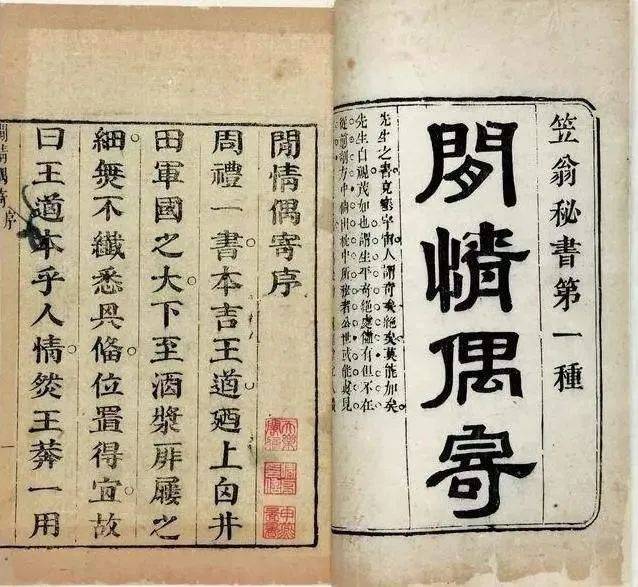 笠翁秘書第一種
閒情偶寄
先生之書充塞宇宙人謂奇矣絕矣莫能加矣。
先生自視蔑如也謂生平奇絕處儘有但不在
閒情偶寄序
周禮一書本言王道。廼上自井
田軍國之大。下至酒漿屝屨之
細。無不纖悉具備。位置得宜。故
曰王道本乎人情。然王莽一用
閒情偶寄 序